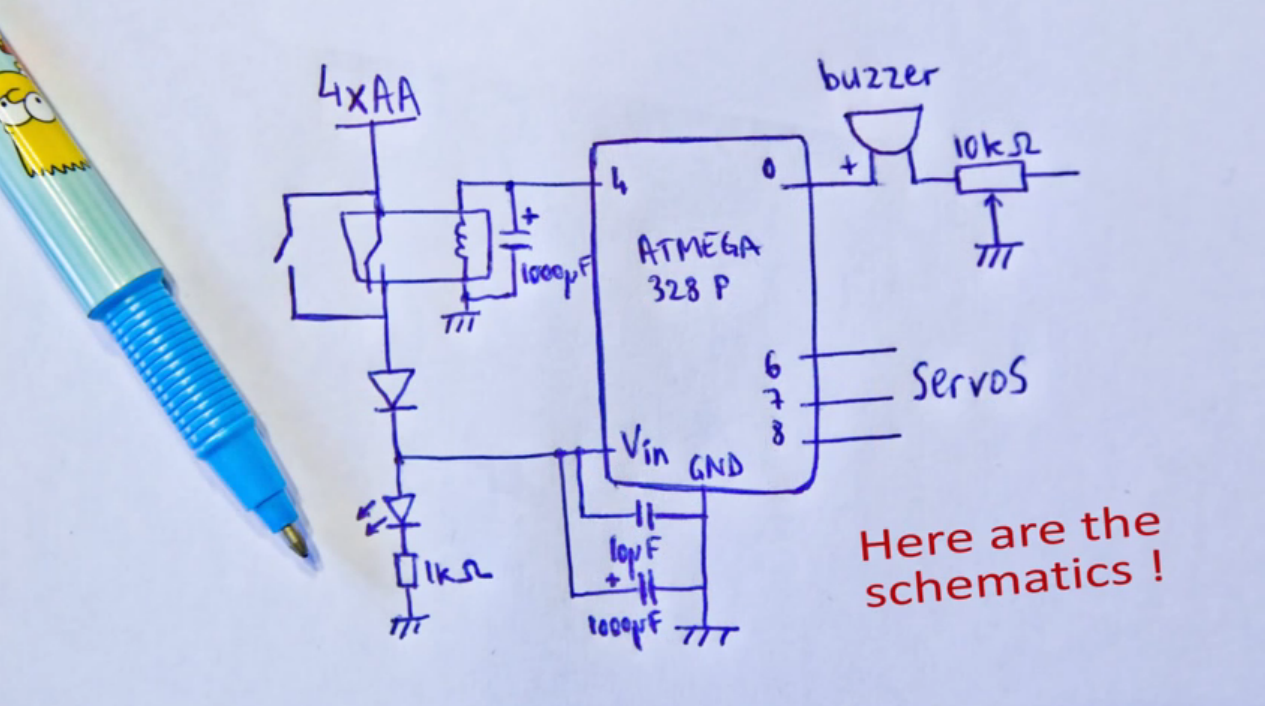 4xAA
buzzer
10kΩ
+
4
0
+
1000µF
ATMEGA
328 P
6
7
8
Servos
Vin
GND
10µF
+
1000µF
1kΩ
Here are the
schematics !